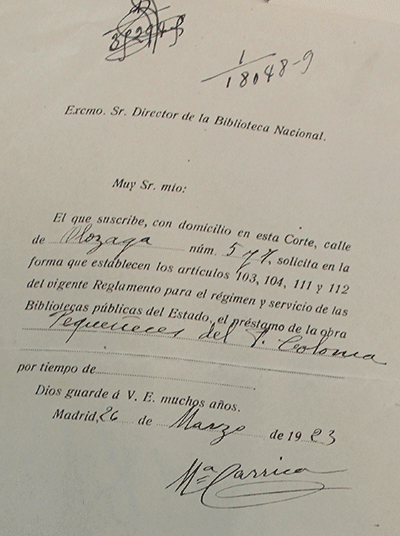 1
18048-9
Excmo. Sr. Director de la Biblioteca Nacional.
Muy Sr. mio:
El que suscribe, con domicilio en esta Corte, calle
de Olozaga núm. 5 y 7, solicita en la
forma que establecen los artículos 103, 104, 111 y 112
del vigente Reglamento para el régimen y servicio de las
Bibliotecas públicas del Estado, el préstamo de la obra
Pequeñeces del P. Coloma
por tiempo de
Dios guarde á V. E. muchos años.
Madrid, 26 de Marzo de 1923
Mª Carrica